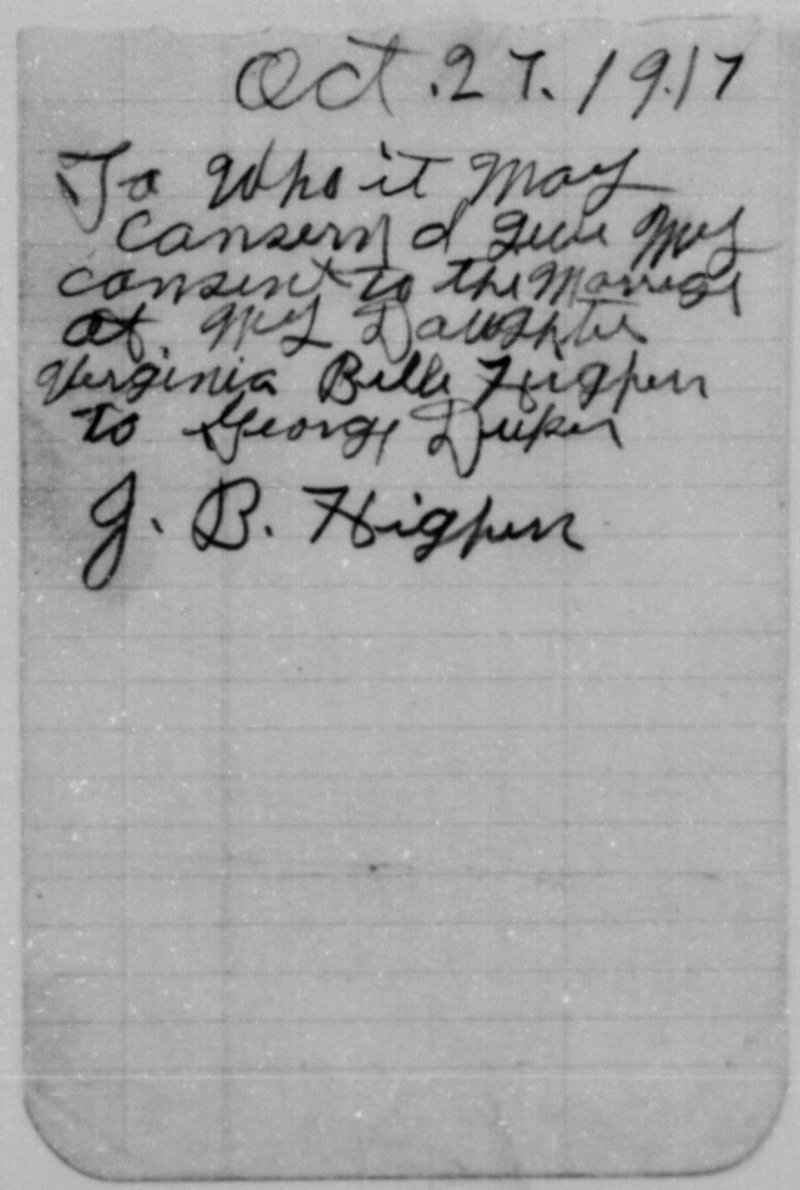 Oct. 27. 1917
To Who it May
Consern I give My
consent to the Marrige
of My Daughter
Verginia Belle Higpen
to George Duker
J. B. Higpen